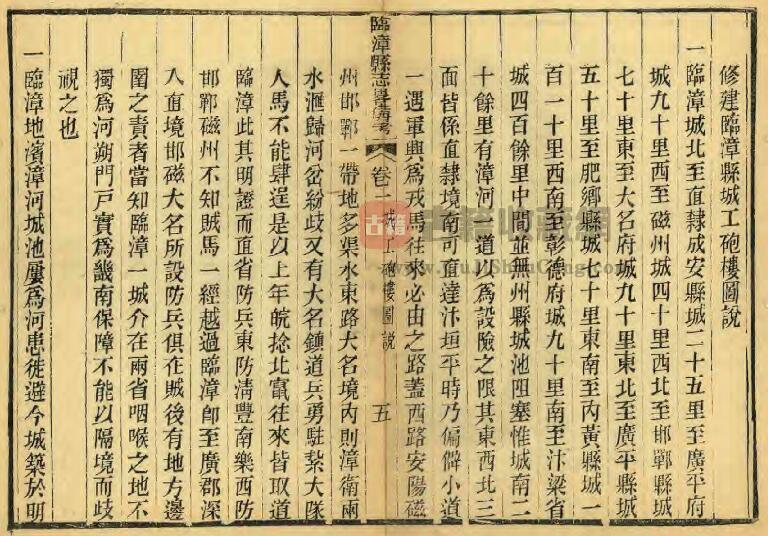 修建臨漳縣城工砲樓圖說
一臨漳城北至直隸成安縣城二十五里至廣平府
城九十里西至磁州城四十里西北至邯鄲縣城
七十里東至大名府城九十里東北至廣平縣城
五十里至肥鄉縣城七十里東南至內黃縣城一
百一十里西南至彰德府城九十里南至汴梁省
城四百餘里中間並無州縣城池阻塞惟城南二
十餘里有漳河一道以為設險之限其東西北三
面皆係直隸境南可直達汴垣平時乃偏僻小道
一遇軍興為戎馬往來必由之路蓋西路安陽磁
臨漳縣志畧備考 卷二 城工砲樓圖說 五
州邯鄲一帶地多渠水東路大名境內則漳衛兩
水滙歸河岔紛歧又有大名鎮道兵勇駐紮大隊
人馬不能肆逞是以上年皖捻北竄往來皆取道
臨漳此其明證而直省防兵東防清豐南樂西防
邯鄲磁州不知賊馬一經越過臨漳即至廣郡深
入直境邯磁大名所設防兵俱在賊後有地方邊
圉之責者當知臨漳一城介在兩省咽喉之地不
獨為河朔門戶實為畿南保障不能以隔境而歧
視之也
一臨漳地濱漳河城池屢為河患徙避今城築於明
古籍